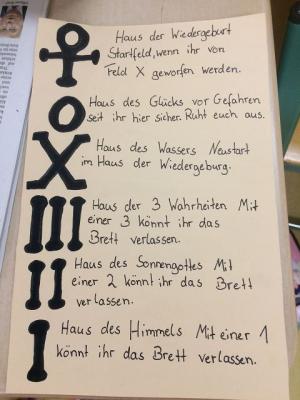 Haus der Wiedergeburt
Startfeld, wenn ihr von
Feld X geworfen werden.
O
Haus des Glücks vor Gefahren
seit ihr hier sicher. Ruht euch aus.
X
Haus des Wassers Neustart
im Haus der Wiedergeburg.
III
Haus der 3 Wahrheiten Mit
einer 3 könnt ihr das
Brett verlassen.
II
Haus des Sonnengottes Mit
einer 2 könnt ihr das Brett
verlassen.
I
Haus des Himmels Mit einer 1
könnt ihr das Brett verlassen.